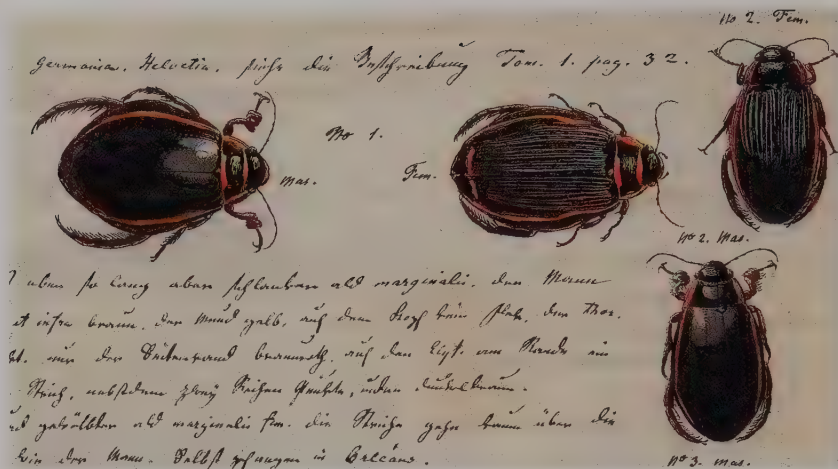 No 2. Fem.
Germania. Helvetia. siehe die Beschreibung Tom. 1. pag. 32.
No 1.
mas.
Fem.
No 2. mas.
eben so lang aber schlanker als marginalis. der Mann
braun. der Mund gelb, auf dem Kopf kein der Thor.
nur der Seitenrand braunroth, auf den Elyt. am Rande ein
Strich, nebstdem zwey Reihen Punkte, unten dunkelbraun.
als marginalis fem. die Striche gehn kaum über die
der Mann. Selbst gefangen in Orleans.
No 3. mas.